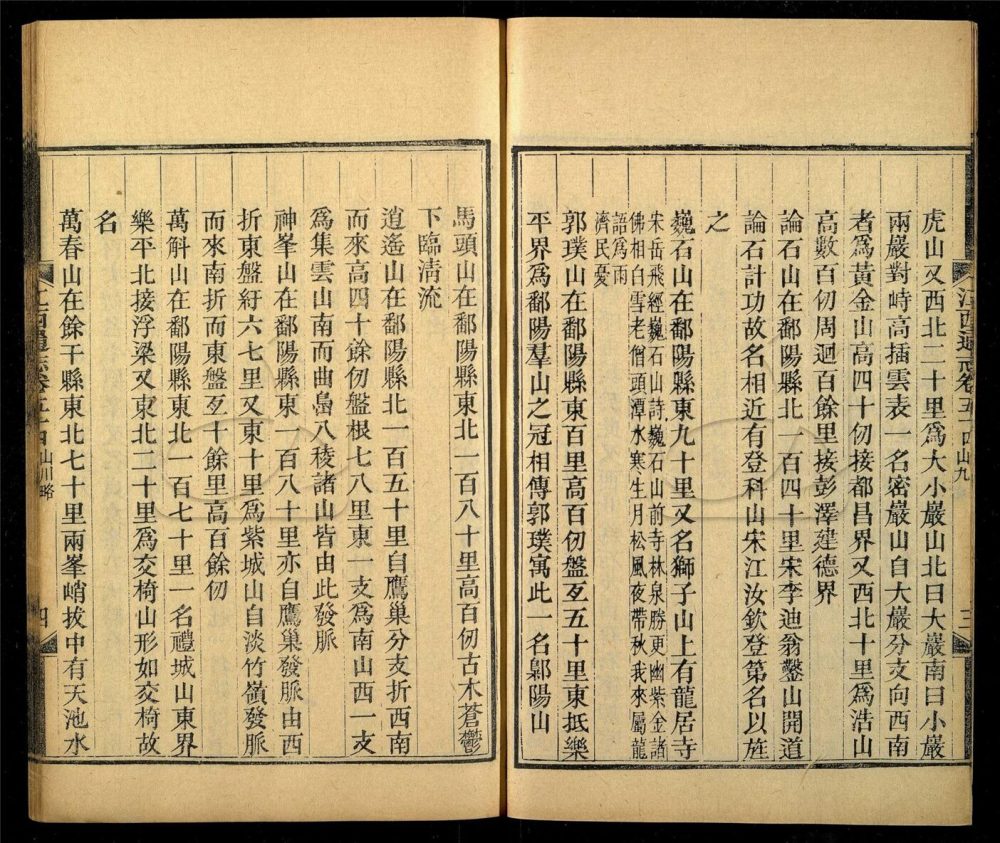 江西通志卷五十四山九
三
虎山又西北二十里爲大小巖山北曰大巖南曰小巖
兩巖對峙高插雲表一名密巖山自大巖分支向西南
者爲黃金山高四十仞接都昌界又西北十里爲浩山
高數百仞周迴百餘里接彭澤建德界
論石山在鄱陽縣北一百四十里宋李迪翁鑿山開道
論石計功故名相近有登科山宋江汝欽登第名以旌
之
巍石山在鄱陽縣東九十里又名獅子山上有龍居寺
宋岳飛經巍石山詩巍石山前寺林泉勝更幽紫金諸
佛相白雪老僧頭潭水寒生月松風夜帶秋我來屬龍
語爲雨
濟民憂
郭璞山在鄱陽縣東百里高百仞盤亙五十里東抵樂
平界爲鄱陽羣山之冠相傳郭璞寓此一名鄡陽山
馬頭山在鄱陽縣東北一百八十里高百仞古木蒼鬱
下臨清流
逍遙山在鄱陽縣北一百五十里自鷹巢分支折西南
而來高四十餘仞盤根七八里東一支爲南山西一支
爲集雲山南而曲島八稜諸山皆由此發脈
神峯山在鄱陽縣東一百八十里亦自鷹巢發脈由西
折東盤紆六七里又東十里爲紫城山自淡竹嶺發脈
而來南折而東盤亙十餘里高百餘仞
萬斛山在鄱陽縣東北一百七十里一名禮城山東界
樂平北接浮梁又東北二十里爲交椅山形如交椅故
名
萬春山在餘干縣東北七十里兩峯峭拔中有天池水
江西通志卷五十四山川略
四